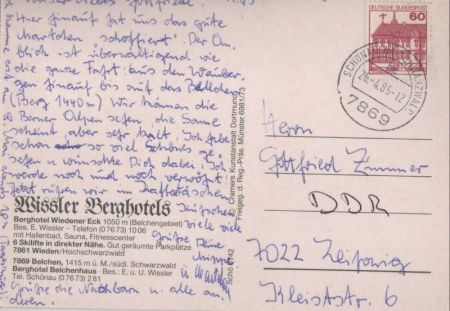 Hier hinauf hat uns das gute
Autochen "schoffiert". Der An-
blick ist überwältigend wie
die ganze Fahrt: aus den
gen hinauf bis auf das Belchen
(Berg 1440 m) Wir können die
Berner Alpen sehen, die Sonne
scheint, aber sehr kalt. Ich habe
schon so viel Schönes ge-
sehen u. wünschte Dich dabei. Ich
werde noch und noch verwöhnt.
Jetzt sitzen wir im
viele
Grüße Deine
Wissler Berghotels
Berghotel Wiedener Eck 1050 m (Belchengebiet)
Bes. E. Wissler - Telefon (07673) 1006
mit Hallenbad, Sauna, Fitnesscenter
6 Skilifte in direkter Nähe. Gut geräumte Parkplätze
7861 Wieden/Hochschwarzwald
7869 Belchen, 1415 m ü. M./südl. Schwarzwald
Berghotel Belchenhaus · Bes.: E. u. U. Wissler
Tel. Schönau (07673) 281
Grüße die Nachbarn u. alle an-
deren.
© Cramers Kunstanstalt Dortmund
Freigeg. d. Reg.-Präs. Münster 6981/73
DEUTSCHE BUNDESPOST
60
24.-4.85-12
7869
Herrn
Gottfried Zimmer
DDR
7022 Leipzig
Kleiststr. 6